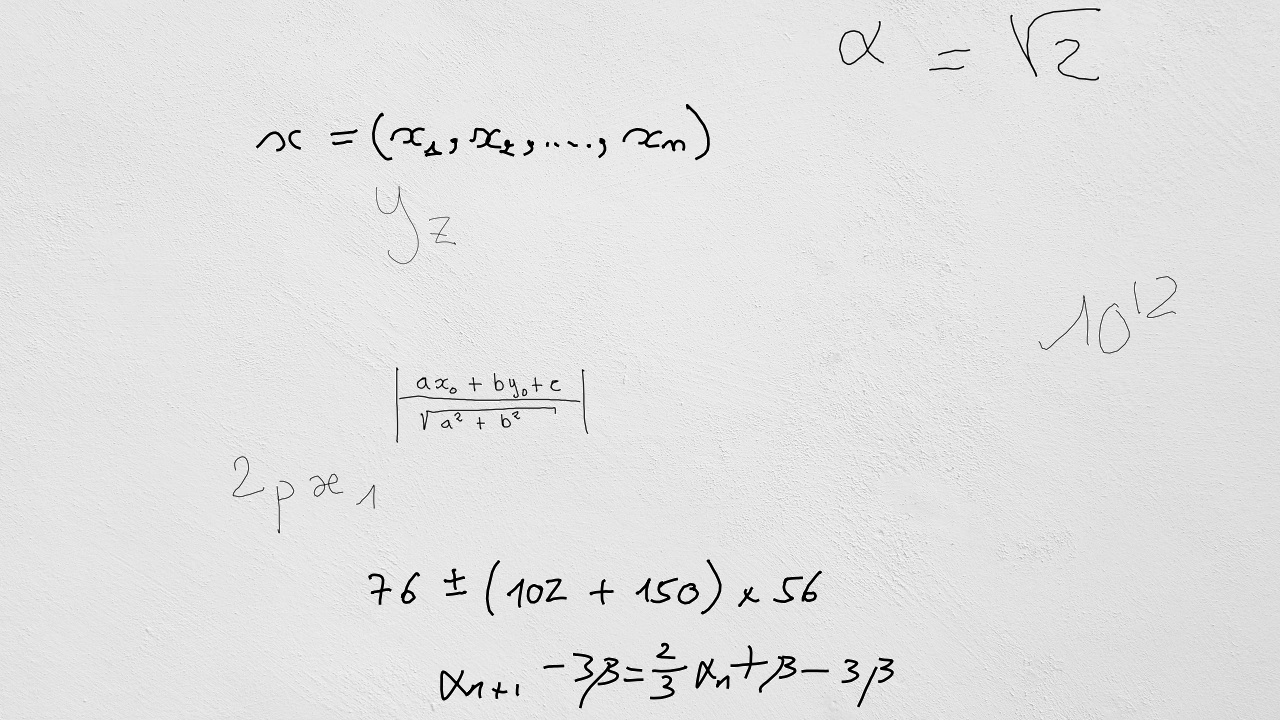 α = √2
x = (x₁, x₂, ...., xₙ)
y_z
10¹²
|(ax₀ + by₀ + c)/√(a² + b²)|
2px₁
76 ± (102 + 150) × 56
αₙ₊₁ - 3β = 2/3 αₙ + β - 3β